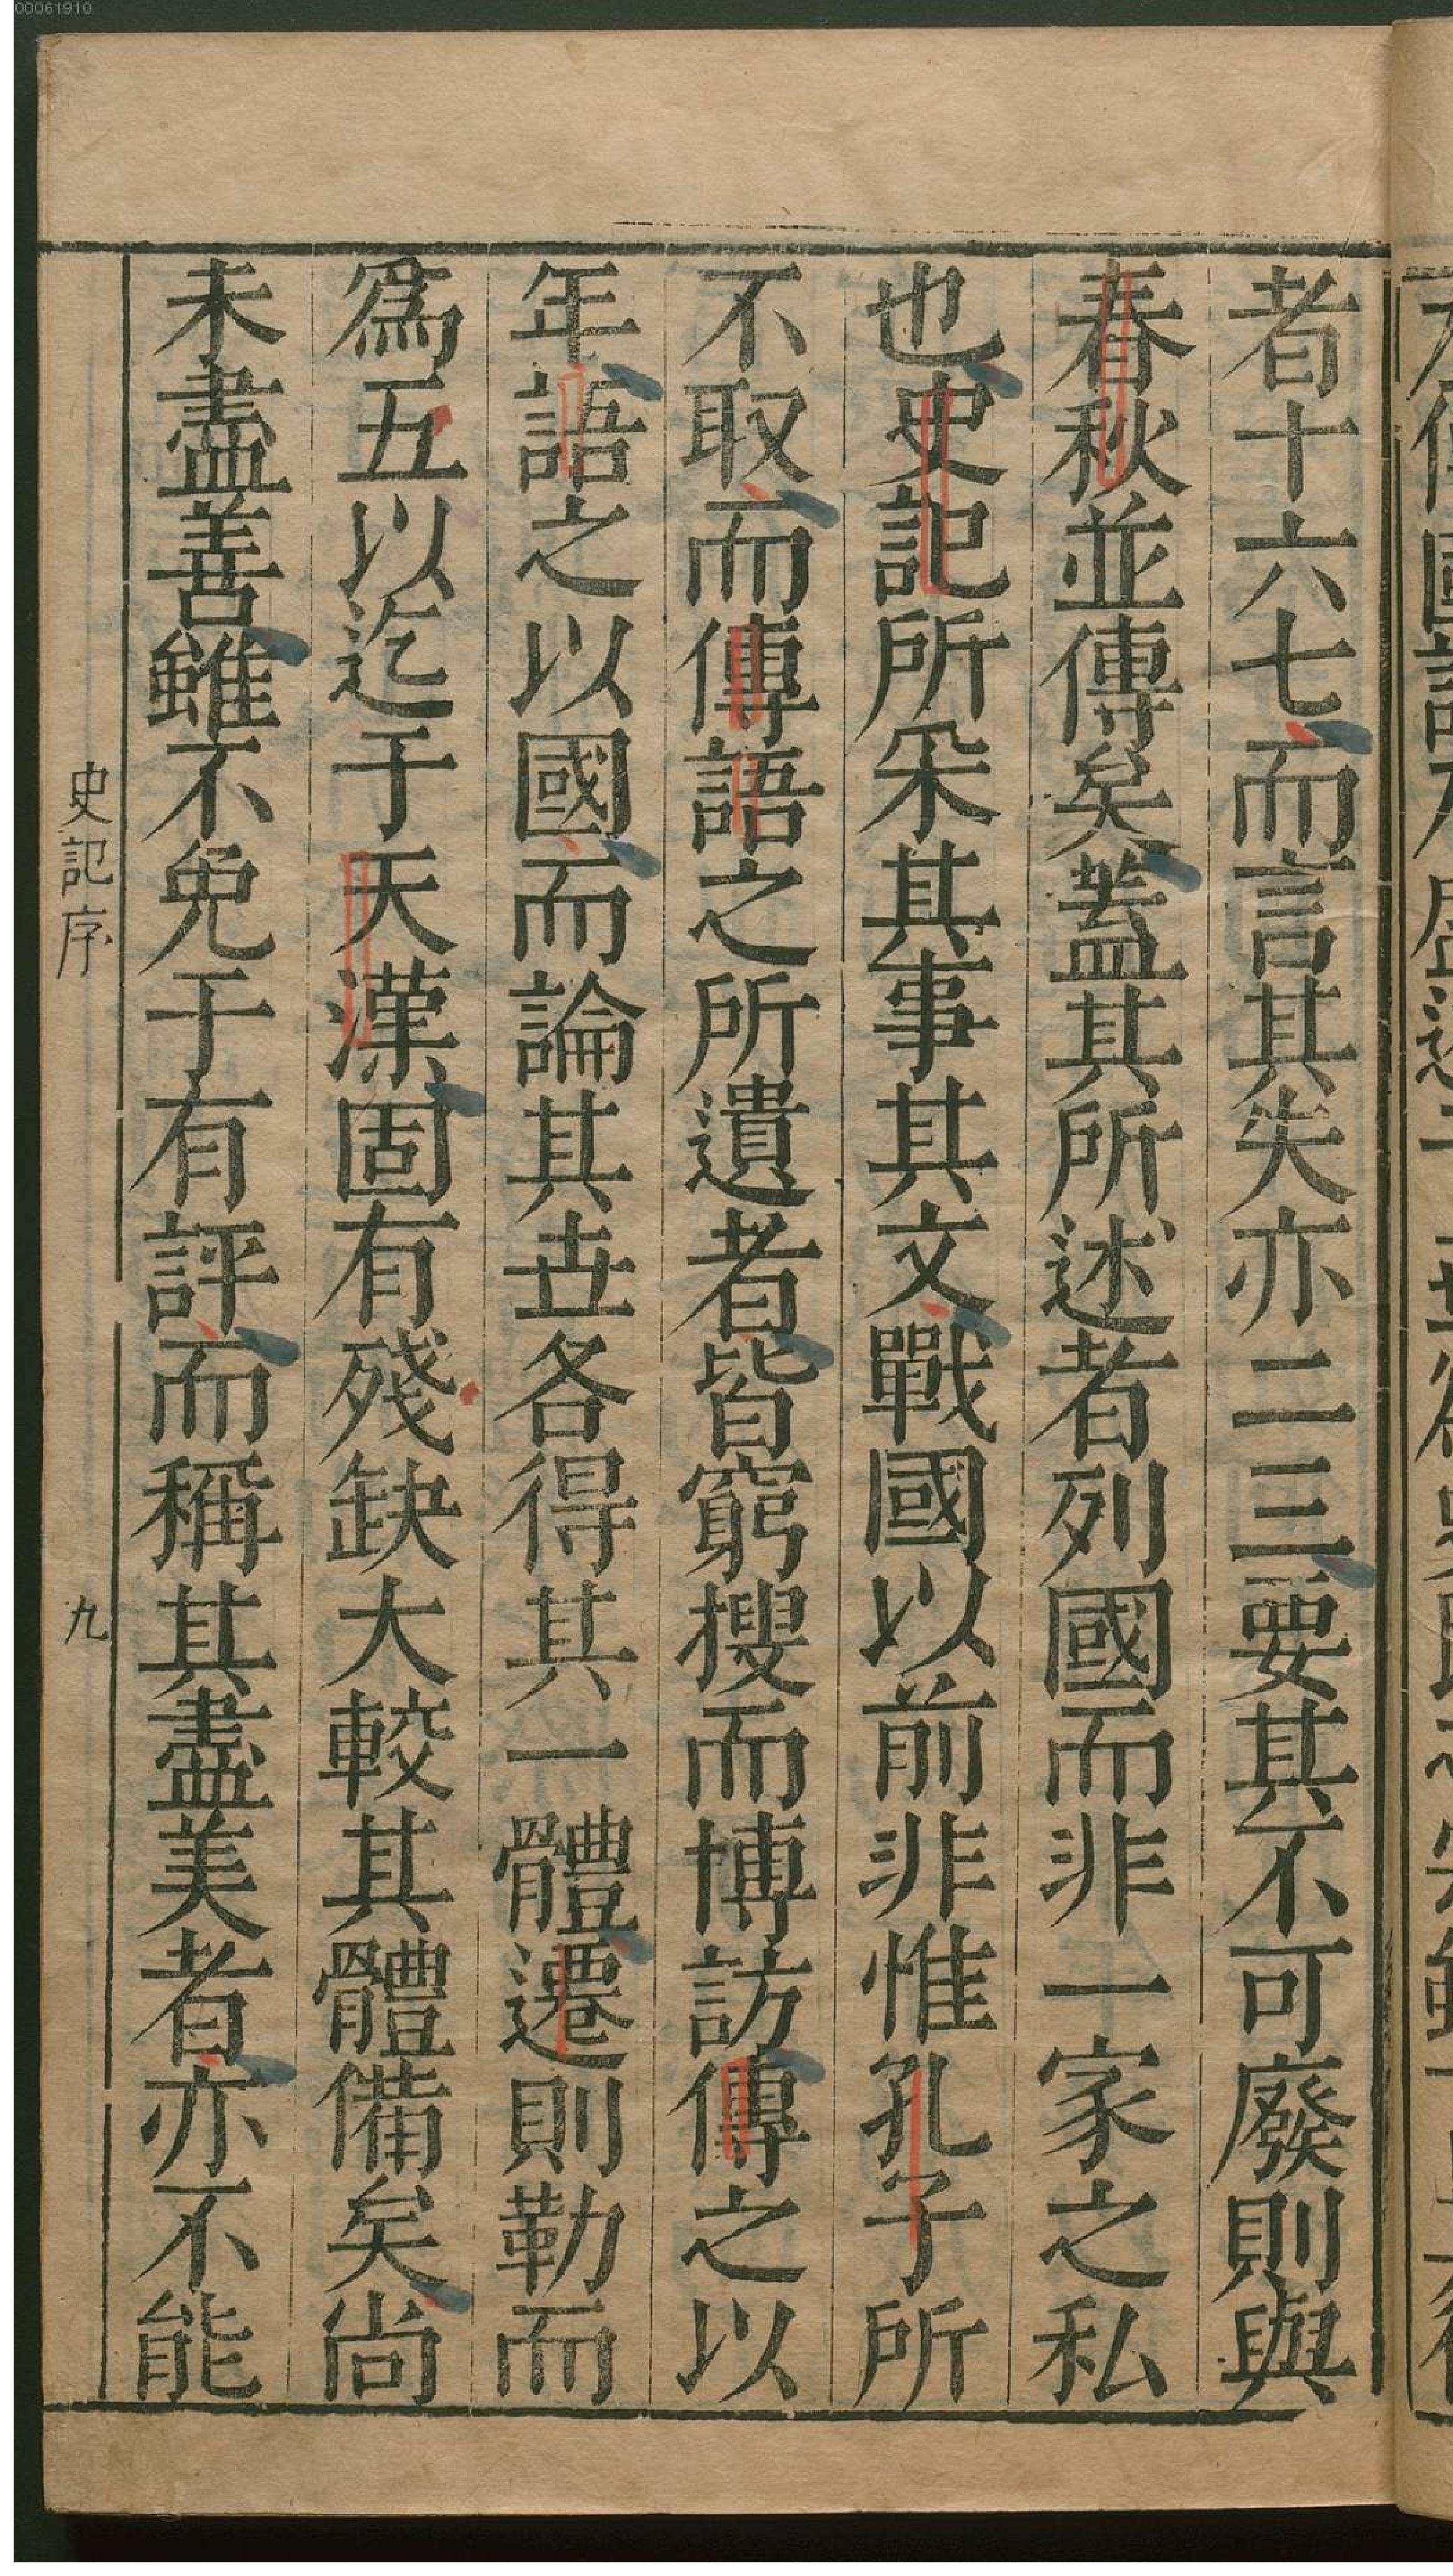 者十六七而言其失亦二三要其不可廢則與
春秋並傳矣蓋其所述者列國而非一家之私
也史記所采其事其文戰國以前非惟孔子所
不取而傳語之所遺者皆窮搜而博訪傳之以
年語之以國而論其卋各得其一體遷則勒而
爲五以迄于天漢固有殘缺大較其體備矣尚
未盡善雖不免于有評而稱其盡美者亦不能
史記序
九
00061910